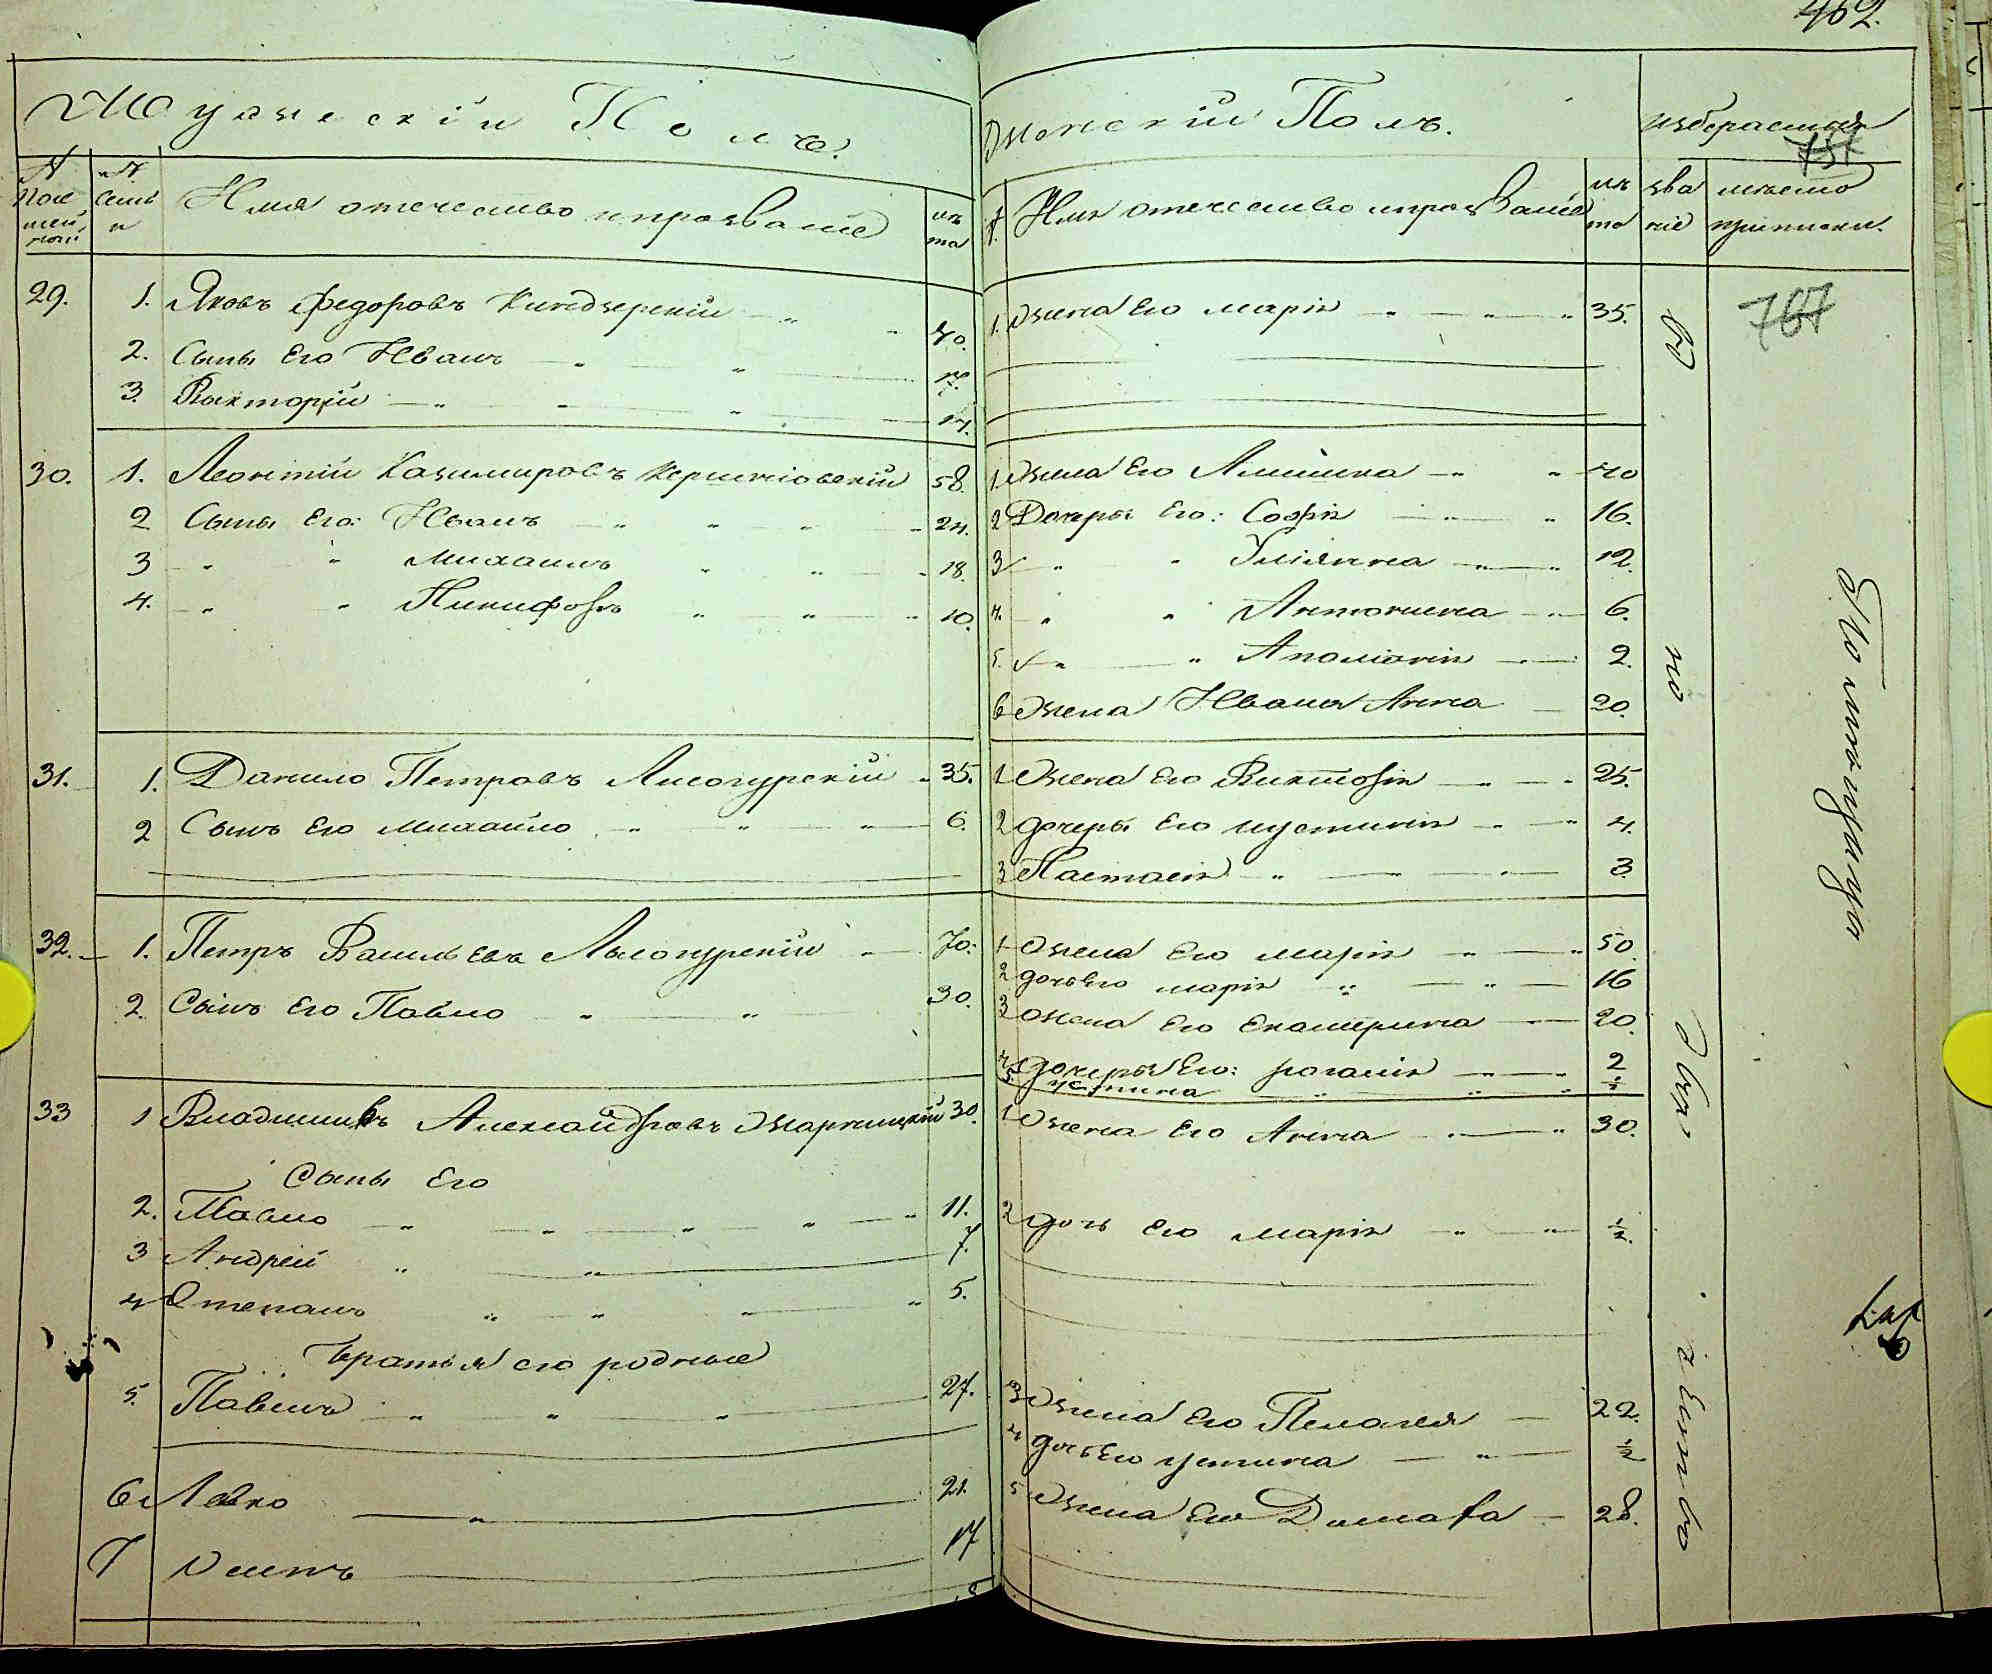 462.
Мужескій Полъ.
№ посемейной
№ семьи
Имя отечество и прозваніе
лѣта
29. 1. Яковъ Федоровъ Киндзерскій 40.
2. Сыны Его Иванъ 17.
3. Викторій 14.
30. 1. Леонтій Казимировъ 58.
2 Сыны Его: Иванъ 24.
3 " " Михаилъ 18.
4. " " Никифоръ 10.
31. 1. Данило Петровъ Лисогурскій 35.
2 Сынъ Его Михайло 6.
32. 1. Петръ Васильевъ Лысогурскій 70.
2. Сынъ Его Павло 30.
33 1 Александровъ Жарницкій 30.
Сыны Его
2. Павло 11.
3 Андрей 7.
4 Степанъ 5.
братья его родные
5. Павелъ 27.
6 Левко 21.
7 Осипъ 17
Женскій Полъ.
избераемыя
757
№ Имя отечество и прозваніе
лѣта
званіе
мѣсто приписки.
1. Жена Его Марія 35.
767
1 Жена Его 40
2 Дочеры Его: Софія 16.
3 " " Уліянна 12.
4. " " Антонина 6.
5. " " Аполонія 2.
6 Жена Ивана Анна 20.
1 Жена Его Викторія 25.
2 дочеры Его Иустинія 4.
3 Настасія 3.
1 Жена Его Марія 50.
2 дочь Его Марія 16
3 жена Его Екатерина 20.
4 дочеры Его: 2
5 Устина ½
1 Жена Его Анна 30.
2 дочь Его Марія ½.
3 Жена Его Пелагея 22.
4 дочь Его Устина ½
5 Жена Его Домафа 28.
въ но дво рянство